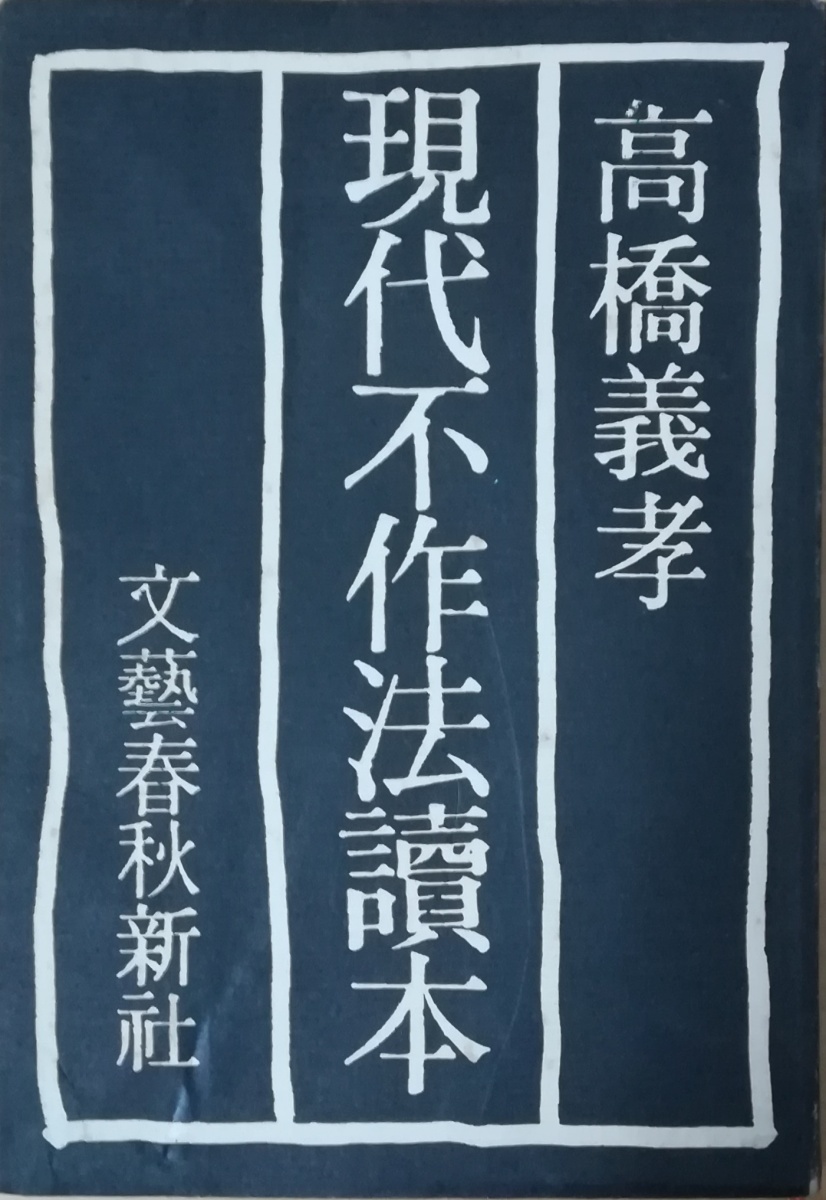 高橋義孝
現代不作法讀本
文藝春秋新社